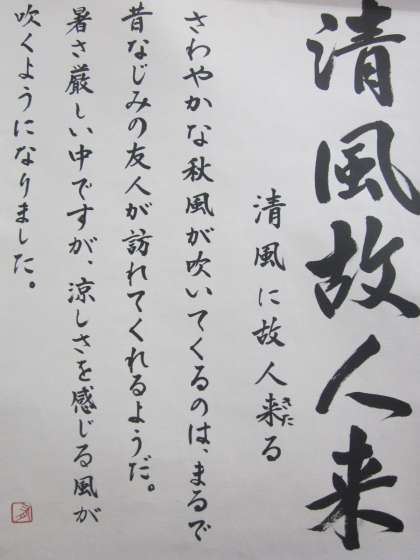 清風故人来
清風に故人来る
きた
さわやかな秋風が吹いてくるのは、まるで
昔なじみの友人が訪れてくれるようだ。
暑さ厳しい中ですが、涼しさを感じる風が
吹くようになりました。